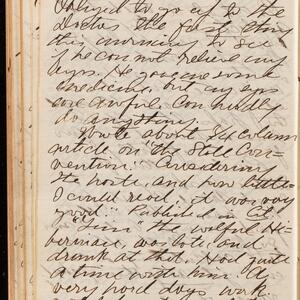 obliged to go up to the
doctor the first thing
this morning to see
if he can not relieve my
eyes. He gave me some
medicine, but my eyes
are awful. Can hardly
do anything.
Wrote about six column
article on "the State Con-
vention." Considering
the haste, and how little
I could read, it was very
good. Published in
"Jim" the wilful Hi-
bernian, was late, and
drunk at that. Had quite
a time with him. A
very good days work